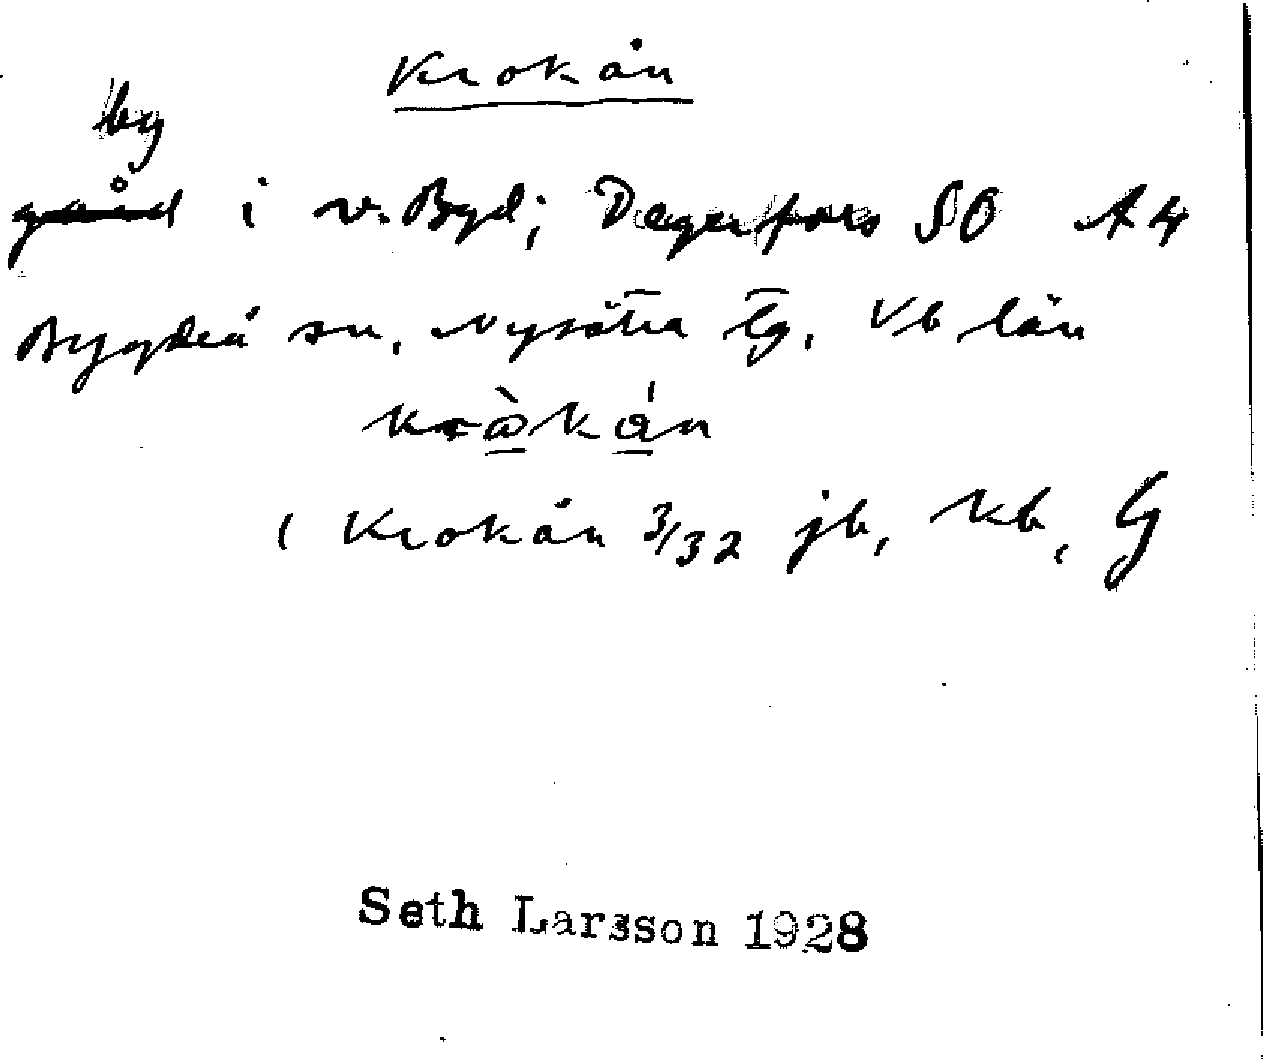 Krokån
by
gård i v. Bygd; Degerfors SO A4
Bygdeå sn, Nysätra tg, Vb län
kråkån
1 Krokån 3/32 jb, kb, G
Seth Larsson 1928